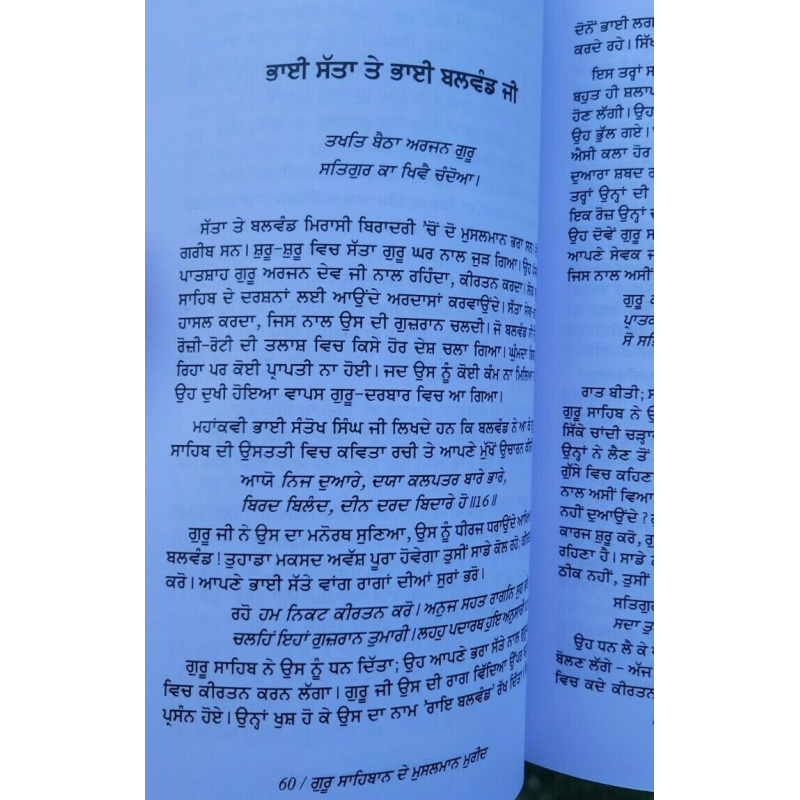 ਭਾਈ ਸੱਤਾ ਤੇ ਭਾਈ ਬਲਵੰਡ ਜੀ
ਤਖਤਿ ਬੈਠਾ ਅਰਜਨ ਗੁਰੂ
ਸਤਿਗੁਰ ਕਾ ਖਿਵੈ ਚੰਦੋਆ।
ਸੱਤਾ ਤੇ ਬਲਵੰਡ ਮਿਰਾਸੀ ਬਿਰਾਦਰੀ 'ਚੋਂ ਦੋ ਮੁਸਲਮਾਨ ਭਰਾ ਸਨ।
ਗਰੀਬ ਸਨ। ਸ਼ੁਰੂ-ਸ਼ੁਰੂ ਵਿਚ ਸੱਤਾ ਗੁਰੂ ਘਰ ਨਾਲ ਜੁੜ ਗਿਆ। ਉਹ
ਪਾਤਸ਼ਾਹ ਗੁਰੂ ਅਰਜਨ ਦੇਵ ਜੀ ਨਾਲ ਰਹਿੰਦਾ, ਕੀਰਤਨ ਕਰਦਾ।
ਸਾਹਿਬ ਦੇ ਦਰਸ਼ਨਾਂ ਲਈ ਆਉਂਦੇ ਅਰਦਾਸਾਂ ਕਰਵਾਉਂਦੇ। ਸੱਤਾ
ਹਾਸਲ ਕਰਦਾ, ਜਿਸ ਨਾਲ ਉਸ ਦੀ ਗੁਜ਼ਰਾਨ ਚਲਦੀ। ਜੋ ਬਲਵੰਡ ਸੀ
ਰੋਜ਼ੀ-ਰੋਟੀ ਦੀ ਤਲਾਸ਼ ਵਿਚ ਕਿਸੇ ਹੋਰ ਦੇਸ਼ ਚਲਾ ਗਿਆ। ਘੁੰਮਦਾ
ਰਿਹਾ ਪਰ ਕੋਈ ਪ੍ਰਾਪਤੀ ਨਾ ਹੋਈ। ਜਦ ਉਸ ਨੂੰ ਕੋਈ ਕੰਮ ਨਾ ਮਿਲਿਆ
ਉਹ ਦੁਖੀ ਹੋਇਆ ਵਾਪਸ ਗੁਰੂ-ਦਰਬਾਰ ਵਿਚ ਆ ਗਿਆ।
ਮਹਾਂਕਵੀ ਭਾਈ ਸੰਤੋਖ ਸਿੰਘ ਜੀ ਲਿਖਦੇ ਹਨ ਕਿ ਬਲਵੰਡ ਨੇ ਆ ਕੇ
ਸਾਹਿਬ ਦੀ ਉਸਤਤੀ ਵਿਚ ਕਵਿਤਾ ਰਚੀ ਤੇ ਆਪਣੇ ਮੁੱਖੋਂ ਉਚਾਰਨ
ਆਯੋ ਨਿਜ ਦੁਆਰੇ, ਦਯਾ ਕਲਪਤਰ ਬਾਰੇ ਭਾਰੇ,
ਬਿਰਦ ਬਿਲੰਦ, ਦੀਨ ਦਰਦ ਬਿਦਾਰੇ ਹੋ॥16॥
ਗੁਰੂ ਜੀ ਨੇ ਉਸ ਦਾ ਮਨੋਰਥ ਸੁਣਿਆ, ਉਸ ਨੂੰ ਧੀਰਜ ਧਰਾਉਂਦੇ
ਬਲਵੰਡ! ਤੁਹਾਡਾ ਮਕਸਦ ਅਵੱਸ਼ ਪੂਰਾ ਹੋਵੇਗਾ ਤੁਸੀਂ ਸਾਡੇ ਕੋਲ ਰਹੋ;
ਕਰੋ। ਆਪਣੇ ਭਾਈ ਸੱਤੇ ਵਾਂਗ ਰਾਗਾਂ ਦੀਆਂ ਸੁਰਾਂ ਭਰੋ।
ਰਹੋ ਹਮ ਨਿਕਟ ਕੀਰਤਨ ਕਰੋ। ਅਨੁਜ ਸਹਤ ਰਾਗਨਿ ਸੁਰ
ਚਲਹਿੰ ਇਹਾਂ ਗੁਜ਼ਰਾਨ ਤੁਮਾਰੀ। ਲਹਹੁ ਪਦਾਰਥ ਹੁਇ ਅਨੁਸਾਰੀ
ਗੁਰੂ ਸਾਹਿਬ ਨੇ ਉਸ ਨੂੰ ਧਨ ਦਿੱਤਾ; ਉਹ ਆਪਣੇ ਭਰਾ ਸੱਤੇ ਨਾਲ
ਵਿਚ ਕੀਰਤਨ ਕਰਨ ਲੱਗਾ। ਗੁਰੂ ਜੀ ਉਸ ਦੀ ਰਾਗ ਵਿੱਦਿਆ ਉੱਪਰ
ਪ੍ਰਸੰਨ ਹੋਏ। ਉਨ੍ਹਾਂ ਖੁਸ਼ ਹੋ ਕੇ ਉਸ ਦਾ ਨਾਮ 'ਰਾਇ ਬਲਵੰਡ' ਰੱਖ ਦਿੱਤਾ।
60 / ਗੁਰੂ ਸਾਹਿਬਾਨ ਦੇ ਮੁਸਲਮਾਨ ਮੁਰੀਦ
ਦੋਨੋਂ ਭਾਈ ਲਗ
ਕਰਦੇ ਰਹੇ। ਸਿੱਖ
ਇਸ ਤਰ੍ਹਾਂ ਸ
ਬਹੁਤ ਹੀ ਸ਼ਲਾਘ
ਹੋਣ ਲੱਗੀ। ਉਹ
ਉਹ ਭੁੱਲ ਗਏ।
ਐਸੀ ਕਲਾ ਹੋਰ
ਦੁਆਰਾ ਸ਼ਬਦ ਰ
ਤਰ੍ਹਾਂ ਉਨ੍ਹਾਂ ਦੀ
ਇਕ ਰੋਜ਼ ਉਨ੍ਹਾਂ ਦ
ਉਹ ਦੋਵੇਂ ਗੁਰੂ ਸ
ਆਪਣੇ ਸੇਵਕ ਜ
ਜਿਸ ਨਾਲ ਅਸੀਂ
ਗੁਰੂ
ਪ੍ਰਾਤਕ
ਸੋ ਸਤਿ
ਰਾਤ ਬੀਤੀ; ਸ
ਗੁਰੂ ਸਾਹਿਬ ਨੇ ਉ
ਸਿੱਕੇ ਚਾਂਦੀ ਚੜ੍ਹਾ
ਉਨ੍ਹਾਂ ਨੇ ਲੈਣ ਤੋਂ
ਗੁੱਸੇ ਵਿਚ ਕਹਿਣ
ਨਾਲ ਅਸੀਂ ਵਿਆ
ਨਹੀਂ ਦੁਆਉਂਦੇ?
ਕਾਰਜ ਸ਼ੁਰੂ ਕਰੋ, ਗੁ
ਰਹਿਣਾ ਹੈ। ਸਾਡੇ
ਠੀਕ ਨਹੀਂ, ਤੁਸੀਂ
ਸਤਿਗੁਰ
ਸਦਾ ਤੁ
ਉਹ ਧਨ ਲੈ ਕੇ
ਬੋਲਣ ਲੱਗੇ - ਅੱਜ
ਵਿਚ ਕਦੇ ਕੀਰਤਨ